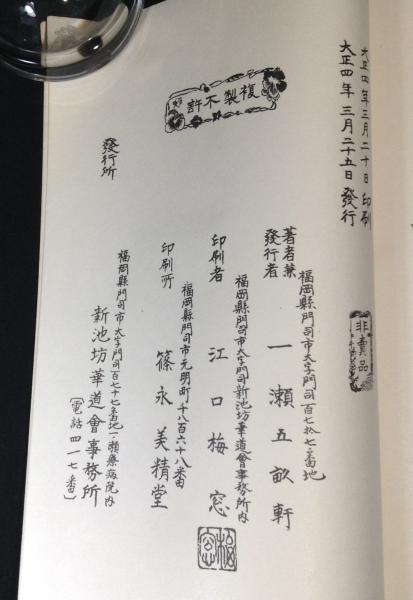 大正四年三月二十日印刷
大正四年三月二十五日發行
非賣品
複製不許
福岡縣門司市大字門司百七拾七番地
著者兼
發行者
一瀬五畝軒
福岡縣門司市大字門司新池坊華道會事務所內
印刷者
江口梅窓
福岡縣門司市元明町千八百六十八番
印刷所
篠永美精堂
發行所
福岡縣門司市大字門司百七十七番地一瀬療病院內
新池坊華道會事務所
(電話四一七番)
梅窓